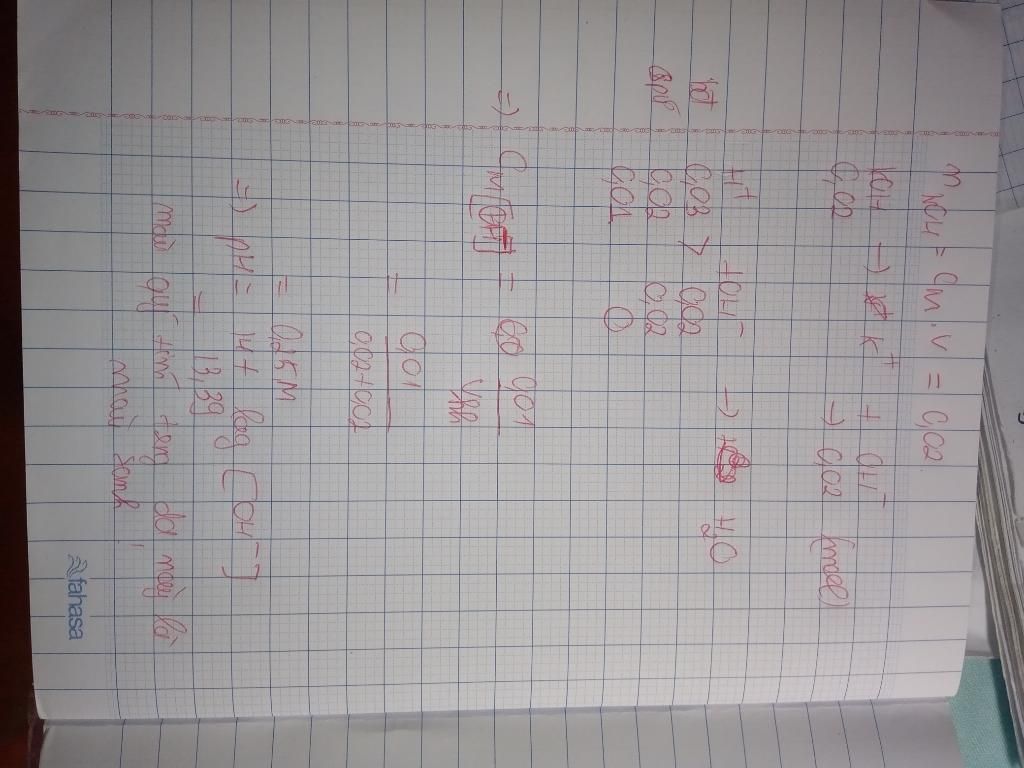 n KOH = CM . V = 0,02
KOH → K+ + OH-
0,02 → 0,02 (mol)
H+ + OH- → H2O
0,03 > 0,02
pứ 0,02 0,02
0,01 0
=> CM[OH-] = 0,01
=
0,01
0,02+0,02
= 0,25M
=> pH = 14 + log [OH-]
= 13,39
màu quỳ tím trong dd này là
màu xanh
fahasa